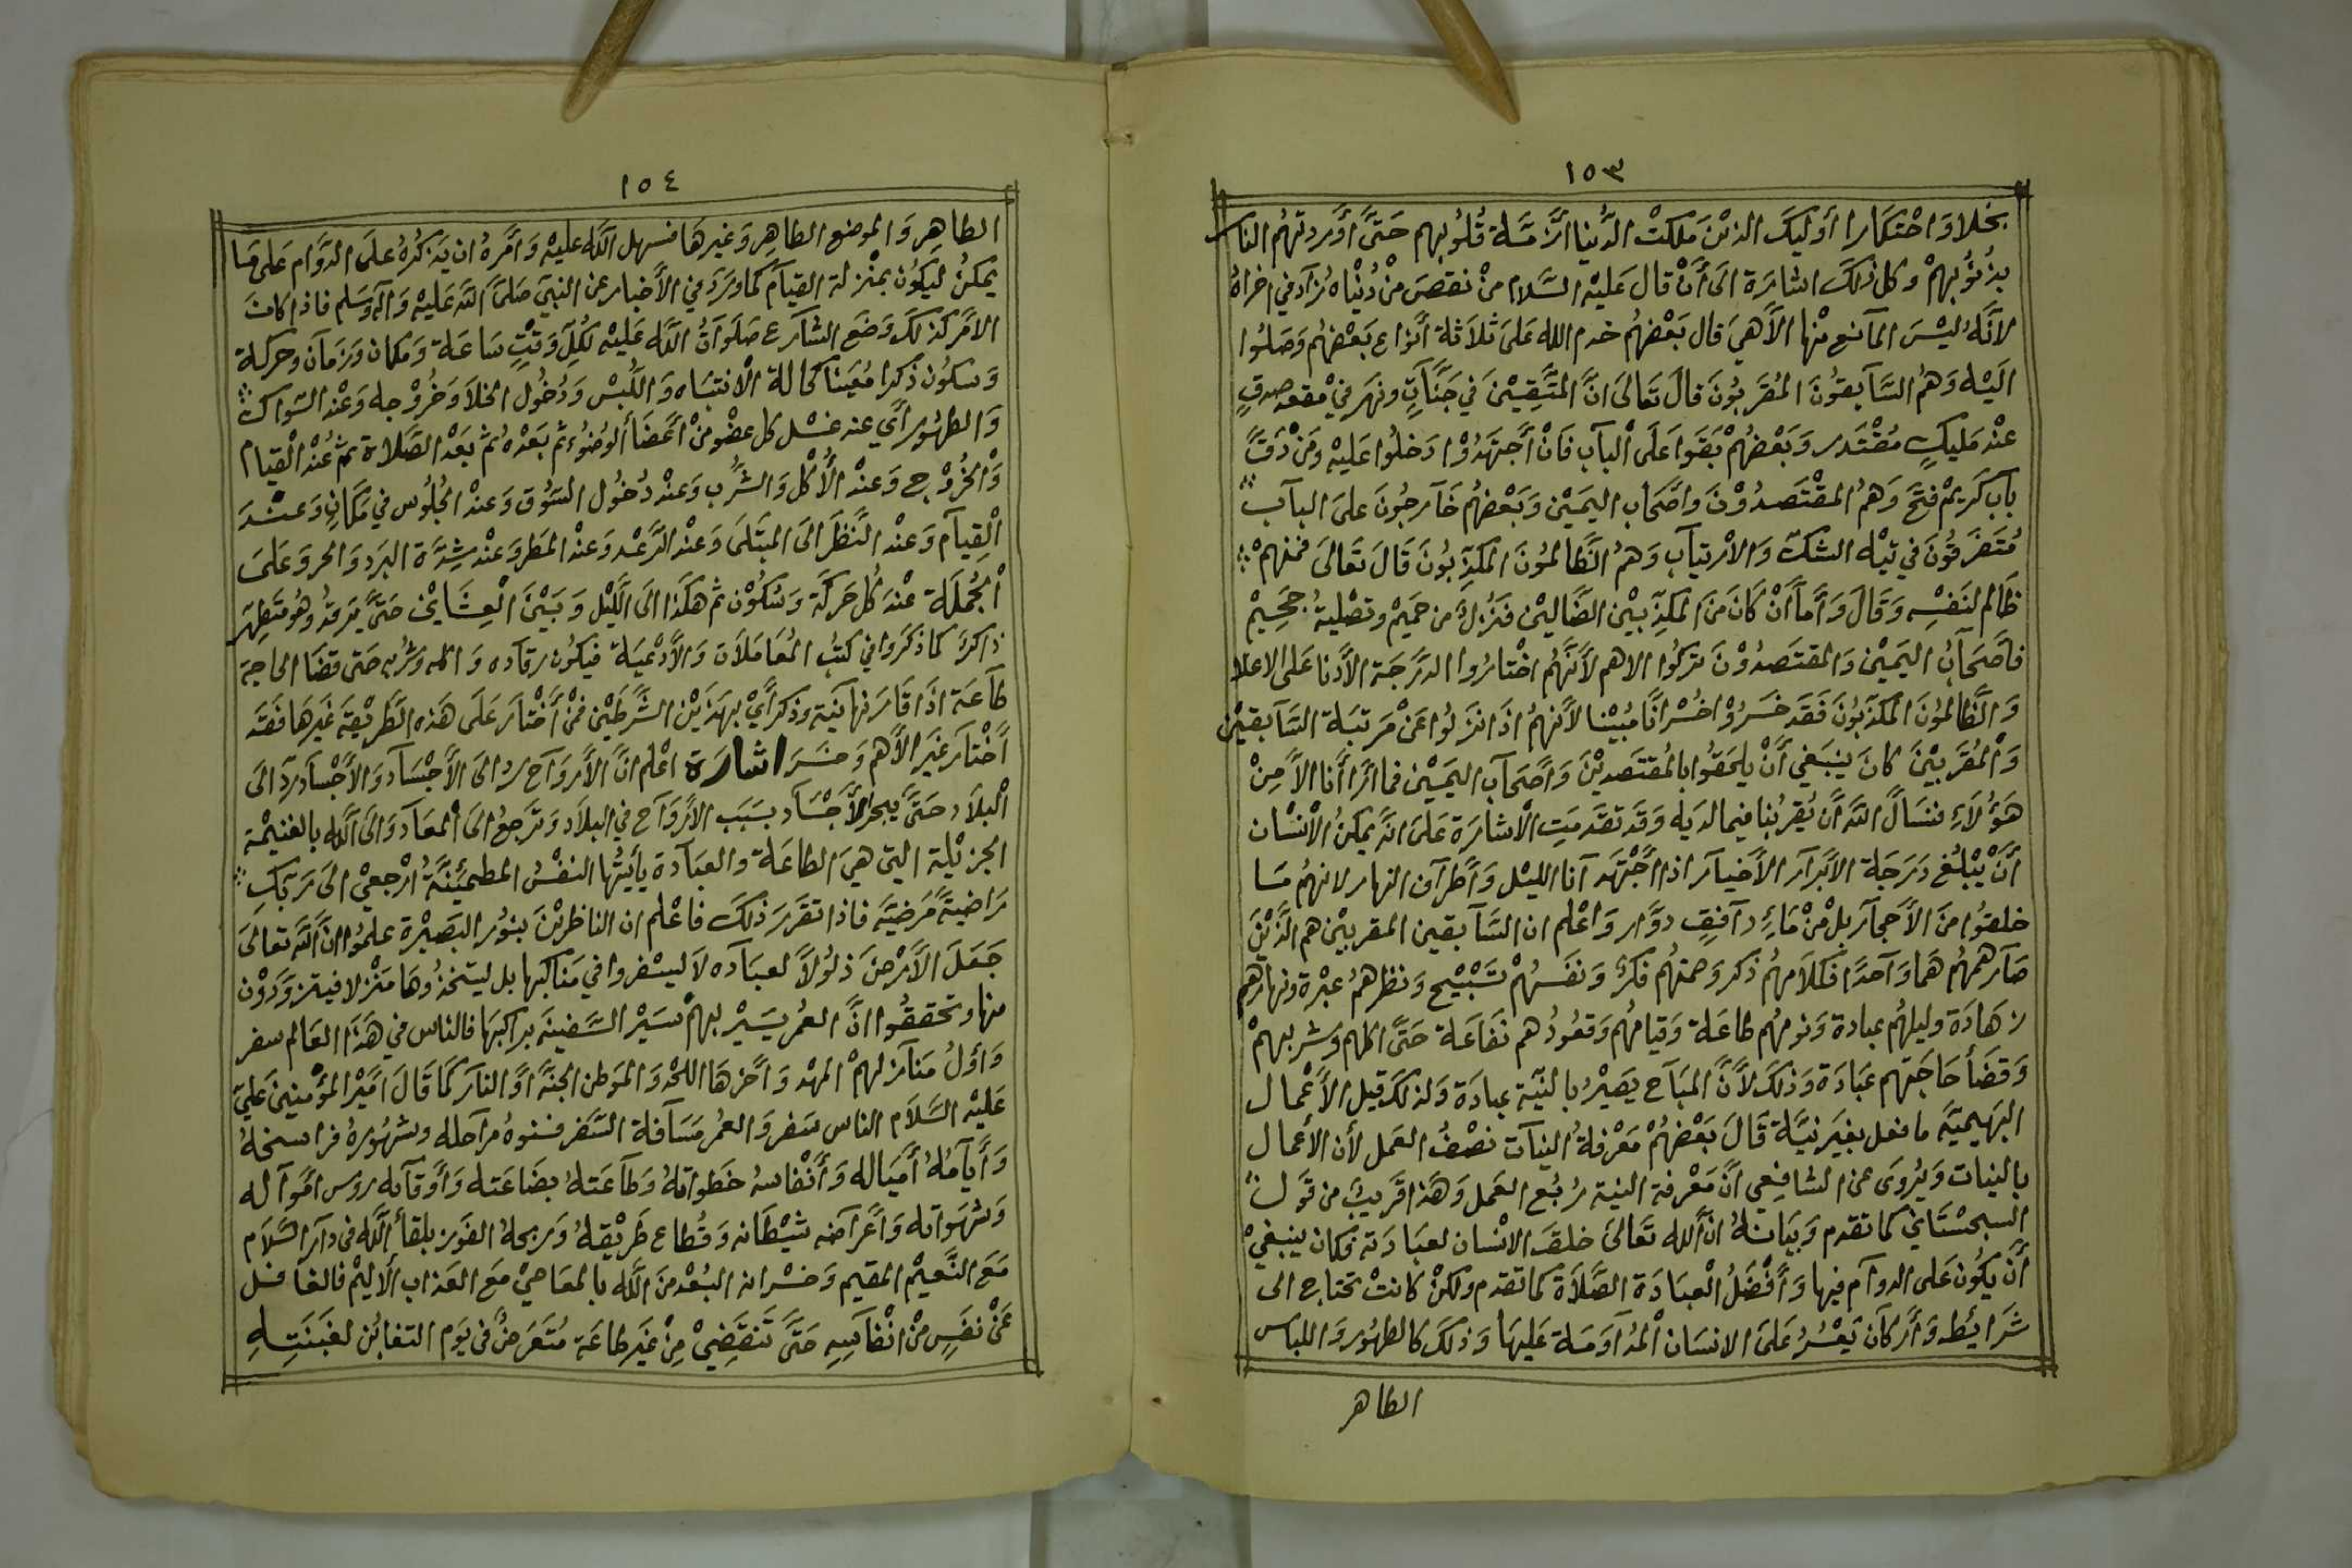 ١٥٣
بخلا وَاحْتكارا أوليَكَ الذيْنَ مَلكتْ الدُّنيا أَزمَّة قُلُوبهم حَتىَّ أَوْردتهُم النار
بذُنُوُبهمْ وكل ذلكَ اشارَة الىَ أَنْ قال عَليْه السَّلام منْ نقصَ منْ دُنْيَاه زَاد في اخراهُ
لانَّهُ ليْسَ المآنع منْها الاَّهيَ قال بَعْضهُم خدم الله عَلىَ ثلاَثة أَنْواع بَعْضهُم وَصَلُوا
اليْه وَهُم السَّآبقُونَ المُقَربُونَ قالَ تَعالىَ انَّ المتَّقيْنَ في جَنَّاتٍ ونهَر في مْقعَد صدقٍ
عنْد مَليكٍ مُقْتَدر وَبَعْضهُمْ بَقَوا عَلَى ألبآب فَانْ أَجتَهَدُوْا دَخلُوا عَليْه وَمَنْ دَقَّ
بآب كَريمْ فتحَ وَهمُ المقْتَصدُوْنَ وَاصَّحَاب اليَميْن وَبَعْضهُم خَآرجُونَ علىَ البآب
مُتَفَرقُونَ في تيْه الشكّ وَالاْرتيآب وَهُم الظَّالمُونَ المكَذّبُونَ قَالَ تَعَالىَ فمنهمْ
ظَالم لنَفْسِه وَقَالَ وَأَمآ أَنْ كَانَ منَ المكذّبيْن الضَّاليْن فَنُزُلٌ من حَميْم وتصْليةُ جَحيْم
فأَصَحَابُ اليَميْن وَالمقتَصدُوْنَ تركُوا الاهم لأنَّهُم اخْتارُوا الدرَجَة الأَدنا عَلى الاعلا
وَالظَّالمُونَ المكذّبُونَ فَقَد خَسَرُوْا خُسْرانًا مُبيْنا لأنهمُ اذَا نزَلُوا عَنْ مَرتبَة السَّآبقيْن
وَاْلمُقَربيْنَ كانَ ينبَغي أَنْ يلحَقُوا بالمُقتَصديْنَ وَأصحَآب اليَميْن فما أرَا أَنا الاَّ مِنْ
هَؤُلاَءِ فنسَالُ اللهَ أَن يُقربُنا فيما لدَيه وَقَد تقدَمَتِ الاْشارَة عَلىَ انَّه يمكنُ الاْنْسان
أَنْ يْبلغ دَرَجَة الاَبْرَآر الأَخيآر اذا أجْتهَد آنا الليْل وَأَطرَآف النهار لانهمُ مَا
خلقُوا منَ الأَحجآر بلْ منْ مَاءٍ دآفقٍ دوَّار وَاعْلم ان السَّآبقين المقربيْن هم الَّذيْنَ
صَآر همهُم هَما وَآحدًا فكلاَمهُم ذكر وَصمتهُم فكرٌ وَنفَسهُمْ تَسْبيْح وَنظرهمُ عبْرة ونهارهم
زهَادَة وليلهُم عبادة وَنومهُم طاعَة وَقيامُهم وَقعُودُهم نَفاعَة حَتىَّ اكلهم وَشربهمْ
وَقضَأ حَاجَتهم عبَادَة وَذلكَ لأَنَّ المبَآح يصَيْرُ بالنيّة عبادَة وَلذلكَ قيل الأَعْمال
البَهيميَّة ما فعل بغَير نيَّة قَالَ بَعْضهُمْ مَعْرفةُ النيآت نصْفُ العَمل لأن الأعمال
بالنيات وَيُروَى عن الشافِعي انَّ مَعْرفة النية رُبُع العَمل وَهَذا قَريبٌ من قَول
السجسْتَاني كما تقدم وَبيَانهُ انَّ الله تَعالىَ خلقَ الانسْان لعبَادَته فكان ينبغيْ
أَنَ يكُون عَلى الدوآم فيها وَأَفْضَلُ الْعبَادَة الصَّلاَة كما تقدم ولكنْ كانتْ تحتاج الى
شَرائيطه وَأَركآن يَعْسُرُ علىَ الانسَان الْمُدآوَمَة عَليهَا وَذلكَ كالطهُور وَاللباس
الطاهر
١٥٤
الطاهِر وَالموضع الطاهِر وَغيرهَا فسهل اللَّه عليهْ وَأَمرهُ ان يَذكُرهُ علىَ الدَّوَام عَلىَ مَا
يمكنُ ليَكوُن بمنْزلة القيآم كما وَرَدَ في الأخبار عن النبيَ صَلىَّ الله عَليْه وَآله وَسَلم فاذا كانَ
الامْر كذلكَ وَضَع الشآرع صَلوَاتُ اللَّه عَليْه لكُلّ وَقْتٍ سَاعَة وَمكان وَزمَآن وحركة
وَسكُون ذكرا مُعَينا كحالة الانتبَاه وَاللّبْس وَدُخُول الخلاَ وَخُرُوْجه وَعنْد السّواك
وَالطهُور أَي عند غسْل كل عضْو منْ أَعضَا الوُضُوء ثم بَعْدهُ ثم بَعْد الصَّلاة ثم عنْد القيام
وَالْخُرُوْج وَعنْد الأْكل وَالشرْب وَعنْد دُخُول السّوُق وَعنْد الجُلوُس في مَكَانٍ وَعنْدَ
الْقِيَآم وَعنْد النَّظَر الىَ المبَتلىَ وَعنْد الرَّعْد وَعنْد المَطر وَعنْد شدَّة البرَد وَالحر وَعَلىَ
اْلجُملَة عنْد كُل حَركَة وَسُكُوْن ثم هكَذا الىَ الَّليْل وَبَيْنَ الْعِشَايْن حَتىَّ يَرقدُ وَهُو مُتَطِهّر
ذاكرٌ كما ذكَرَوا في كتُب المُعَامَلات وَالأَدْعيَة فيكُون رقآده وَاكله وشربه حَتى قضَا الحاجة
طآعَة اذَا قَارَنها نيَة وذكر أَيْ بهذَيْن الشَرطَيْن فمَنْ أَخْتآر عَلَى هَذه الطَّريْقة غَيرهَا فقَد
أَخْتآر غيَر الاَّهم وَخسَرَ اشارَة اعْلم انَّ الأروَآح رد الىَ الاَجْسَآد وَالاَجْسَآد ردّ الىَ
اْلبلاَد حَتىَّ يبحر الأَجْسَآد بسَبَب الاَروَآح في البلاَد وَترجعُ الىَ اْلمعَآد وَالىَ اللَّه بالغنيْمة
الجزيْلة التي هيَ الطاعَة والعبَآدة يأيتُها النفْسُ المطمئِنَّةُ ارْجعيْ الىَ رَبّكِ
رَاضيةً مَرضيّة فاذا تقَرَرَ ذلكَ فاعْلم ان الناظريْنَ بنوُر البَصيْرة علمُوا انَّ اللهَ تعالىَ
جَعَلَ الأَرْضَ ذلُولاً لعبَآده لاَ ليسْفروا في مَناكبها بل ليتخذُوهَا مَنْزلا فيتزوَّدُوْن
منها وتحققُوا انَّ العمُر يسَيْر بهمْ سَيْر السَّفينَة براكبهَا فالناس في هَذَا العَالم سفر
وَأوَلُ مَنآزلهمْ المهْد وَآخرهَا اللحْد وَالمَوطن الجنَّة أَو النار كمَا قَالَ امَيْر المؤْمنيْن عَلي
عَليْه السَّلاَم الناس سَفر وَالعمُر مَسَآفة السَّفر فسنُوهُ مرآحله وشهُوُرهُ فراسخهُ
وَأَيآمُهُ أَميَاله وَأَنْفاسهُ خطواتهُ وَطآعَتهُ بضَاعَته وَأَوقاته رؤس أَموآله
وَشهَواته وَأَعْراضه شيْطَانه وَقُطاع طَريْقهُ وَربحهُ الفَوز بلقأ اللَّه فى دار السَّلاَم
مَعَ النَّعيْم المقيم وَخسْرانه البُعْد منَ اللَّه بالمعَاصيْ مَع العذاب ألاليْم فالغافل
عَنْ نفَسٍ منْ انْفاسِهِ حَتىَّ تَنقَضِيْ مِنْ غيَر طاعَة مُتَعَرضُ فى يَوم التغابُن لغبَنَتِهِ